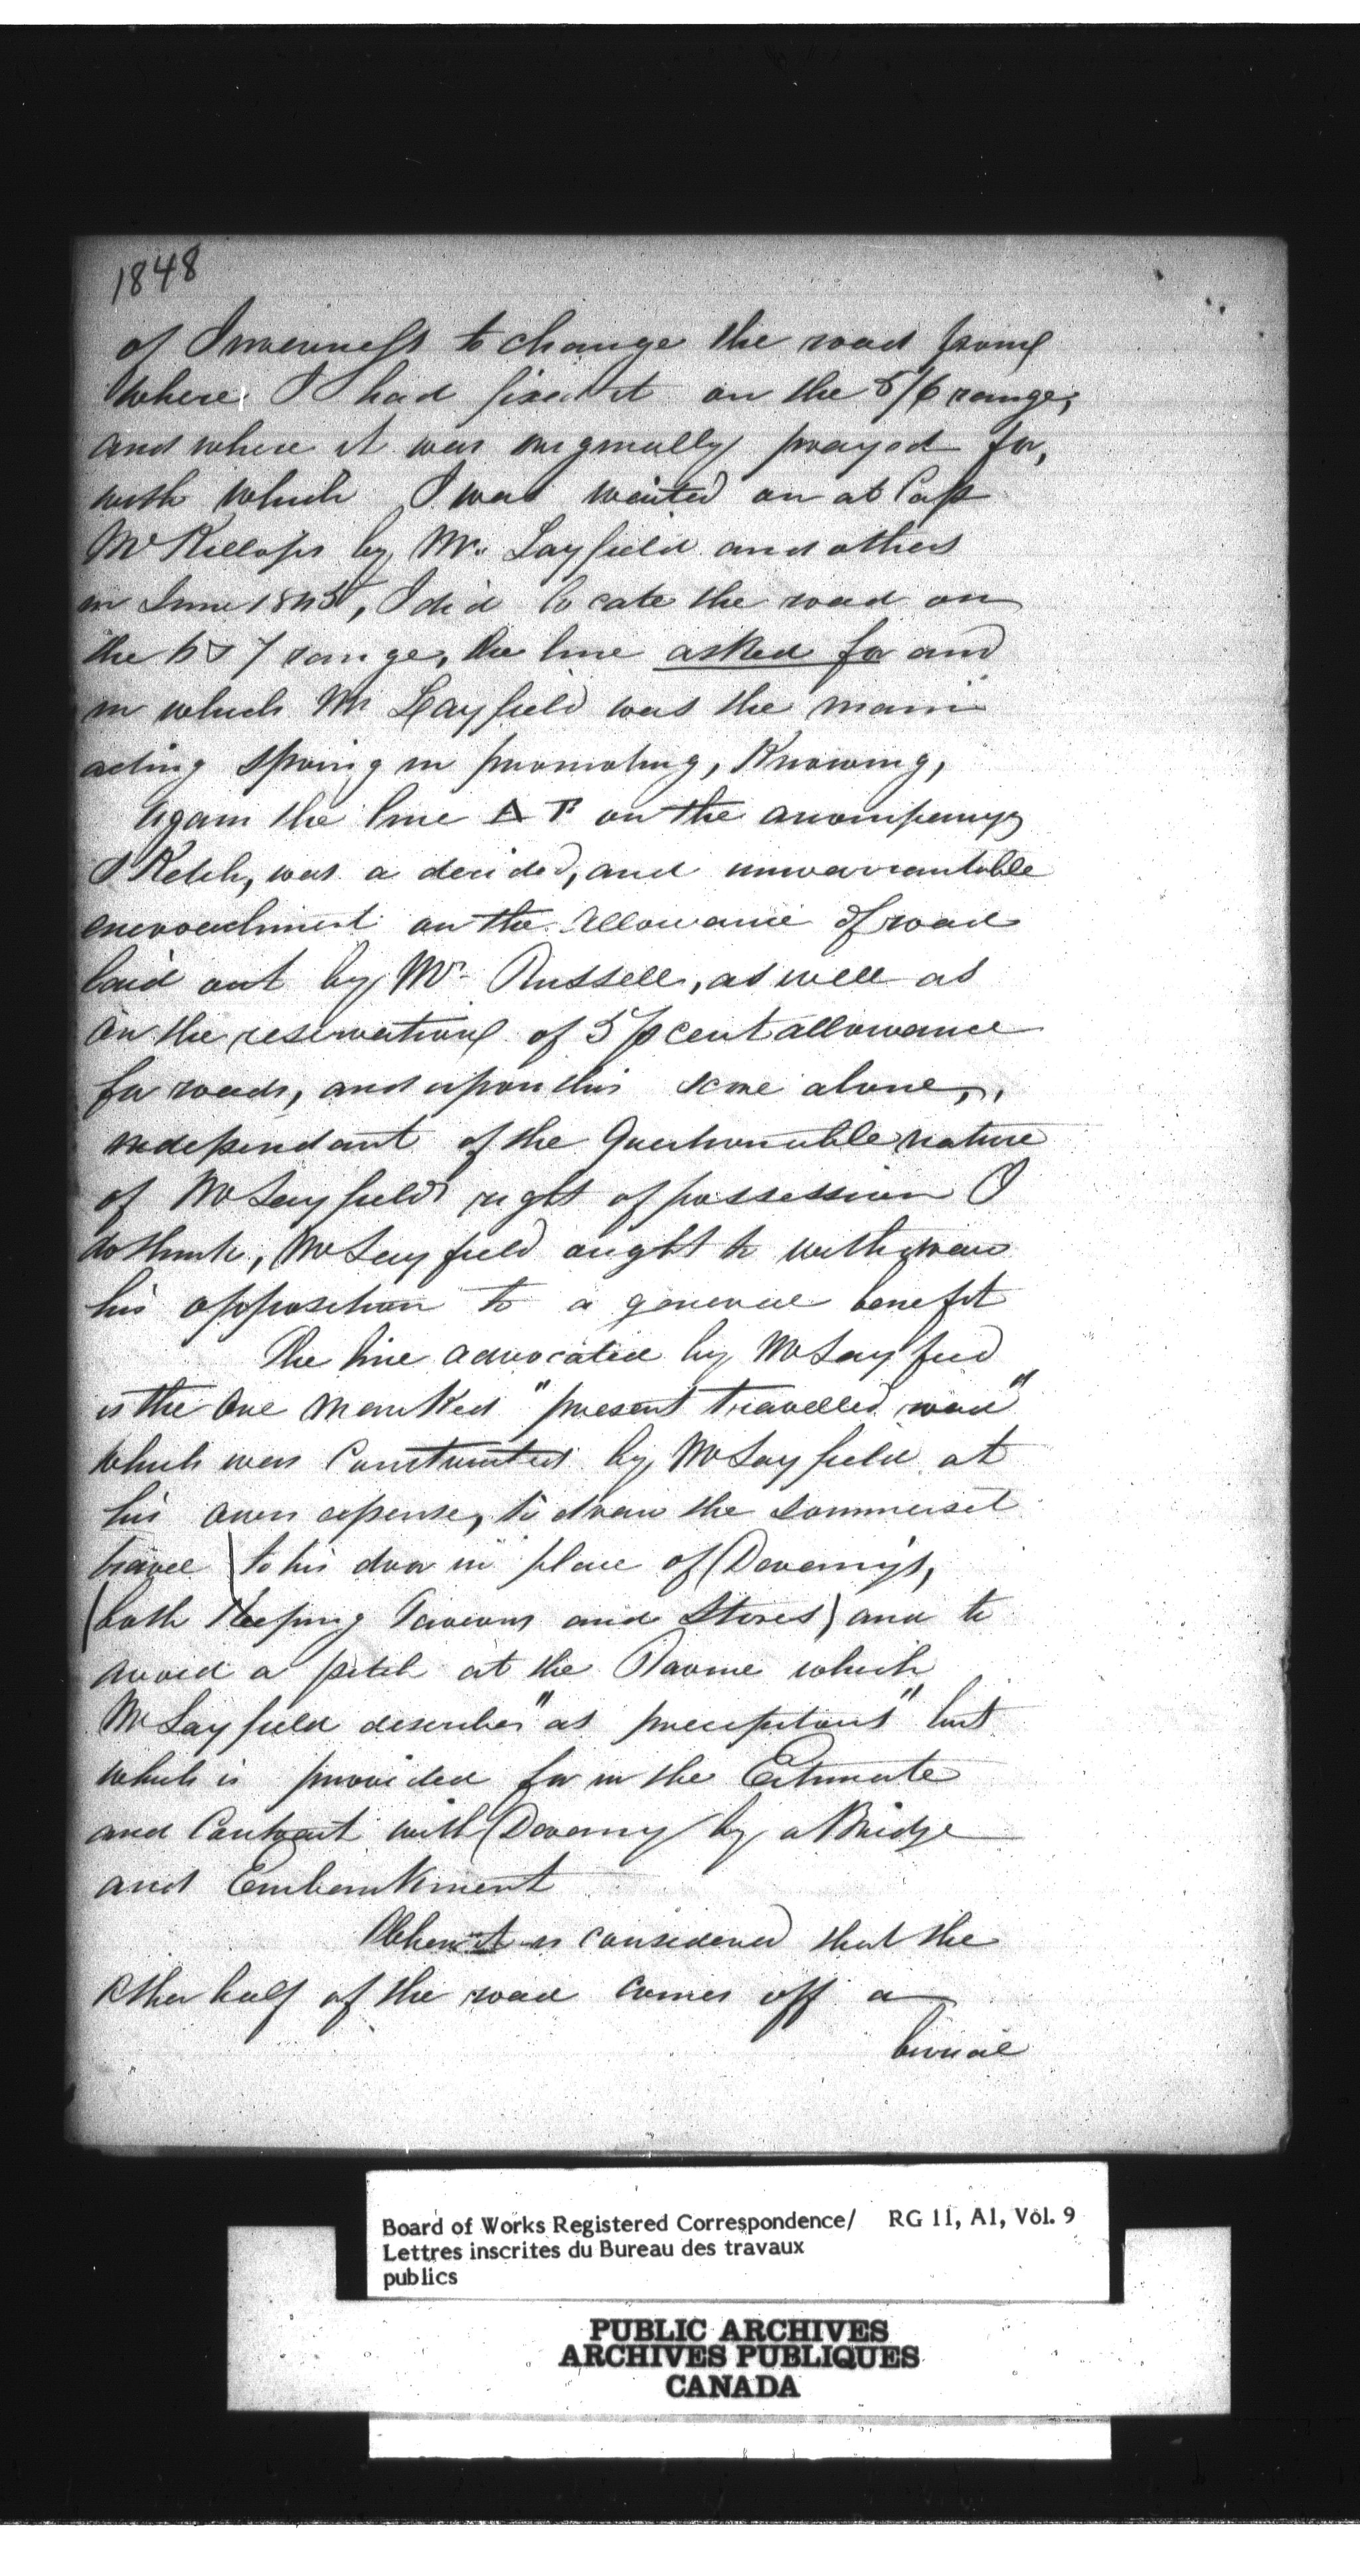 1848
of Inverness to change the road from
where I had fixed it on the 5/6 range,
and where it was originally prayed for,
with which I was waited on at Capt
McKillops by Mr. Layfield and others
in June 1845, I did locate the road on
the 6 & 7 range, the line asked for and
in which Mr Layfield was the main
acting spring in promoting, Knowing,
Again the line A B on the accompanyg
Sketch, was a decided, and unwarrantable
encroachment on the allowance of road
laid out by Mr. Russell, as well as
on the reservation of 5 p cent allowance
for roads, and upon this score alone,
independant of the Questionable nature
of Mr Layfields right of possession I
do think, Mr Layfield ought to withdraw
his opposition to a general benefit
The line advocated by Mr Layfield
is the one marked "present travelled road"
which was Constructed by Mr Layfield at
his own expense, to draw the Sommerset
travel to his door in place of Devenny's,
(both Keeping Taverns and Stores) and to
avoid a pitch at the Ravine which
Mr Layfield describes "as precipitous" but
which is provided for in the Estimate
and Contract with Devenny by a Bridge
and Embankment
When it is considered that the
other half of the road comes off a
Board of Works Registered Correspondence/ RG 11, A1, Vol. 9
Lettres inscrites du Bureau des travaux
publics
PUBLIC ARCHIVES
ARCHIVES PUBLIQUES
CANADA